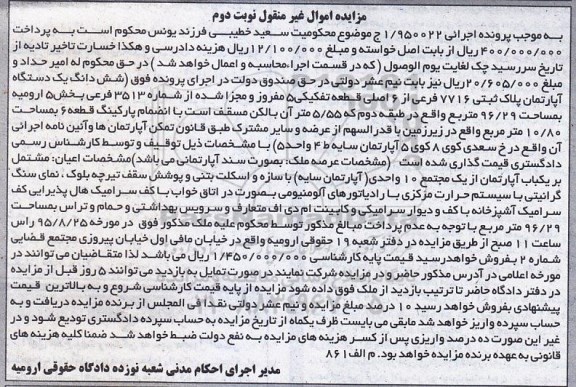 مزایده اموال غیر منقول نوبت دوم
به موجب پرونده اجرائی ۱/۹۵۰۰۲۲ ج موضوع محکومیت سعید خطیبی فرزند یونس محکوم است به پرداخت
۴۰۰/۰۰۰/۰۰۰ ریال از بابت اصل خواسته و مبلغ ۱۲/۱۰۰/۰۰۰ ریال هزینه دادرسی و هکذا خسارت تاخیر تادیه از
تاریخ سررسید چک لغایت یوم الوصول (که در قسمت اجرا،محاسبه و اعمال خواهد شد) در حق محکوم له امیر حداد و
مبلغ ۲۰/۶۰۵/۰۰۰ ریال نیز بابت نیم عشر دولتی در حق صندوق دولت در اجرای پرونده فوق (شش دانگ یک دستگاه
آپارتمان پلاک ثبتی ۷۷۱۶ فرعی از ۶ اصلی قطعه تفکیکی ۵ مفروز و مجزا شده از شماره ۳۵۱۳ فرعی بخش ۵ ارومیه
بمساحت ۹۶/۲۹ متر مربع واقع در طبقه دوم که ۵/۵۵ متر آن بالکن مسقف است با انضمام پارکینگ قطعه ۶ بمساحت
۱۰/۸۰ متر مربع واقع در زیرزمین با قدرالسهم از عرصه و سایر مشترک طبق قانون تملک آپارتمان ها وآئین نامه اجرائی
آن واقع در خ سعدی کوی ۸ کوی ۵ آپارتمان سایه ط ۴ واحد ۵) با مشخصات ذیل توقیف و توسط کارشناس رسمی
دادگستری قیمت گذاری شده است (مشخصات عرصه ملک: بصورت سند آپارتمانی می باشد)مشخصات اعیان: مشتمل
بر یکباب آپارتمان از یک مجتمع ۱۰ واحدی(آپارتمان سایه) با سازه و اسکلت بتنی و پوشش سقف تیرچه بلوک، نمای سنگ
گرانیتی با سیستم حرارت مرکزی با رادیاتورهای آلومینیومی بصورت دو اتاق خواب با کف سرامیک هال پذیرایی کف
سرامیک آشپزخانه با کف و دیوار سرامیک و کابینت ام دی اف متعارف و سرویس بهداشتی و حمام و تراس بمساحت
۹۶/۲۹ متر مربع با توجه به عدم پرداخت مبالغ مذکور توسط محکوم علیه ملک مذکور فوق در مورخه ۹۵/۸/۲۵ راس
ساعت ۱۱ صبح از طریق مزایده در دفتر شعبه ۱۹ حقوقی ارومیه واقع در خیابان مافی اول خیابان پیروزی مجتمع قضایی
شماره ۲ بفروش خواهد رسید قیمت پایه کارشناسی ۱/۴۵۰/۰۰۰/۰۰۰ ریال می باشد لذا متقاضیان می توانند در
مورخه اعلامی در آدرس مذکور حاضر و در مزایده شرکت نمایند در صورت تمایل به بازدید می توانند ۵ روز قبل از مزایده
در دفتر دادگاه حاضر تا ترتیب بازدید از ملک فوق داده شود مزایده از پایه قیمت کارشناسی شروع و به بالاترین قیمت
پیشنهادی بفروش خواهد رسید ۱۰ درصد مبلغ مزایده و نیم عشر دولتی نقدا فی المجلس از برنده مزایده دریافت و به
حساب سپرده واریز خواهد شد مابقی می بایست ظرف یکماه از تاریخ مزایده به حساب سپرده دادگستری تودیع شود و در
غیر این صورت ده درصد واریزی پس از کسر هزینه های مزایده به نفع دولت ضبط خواهد شد ضمنا کلیه هزینه های
قانونی به عهده برنده مزایده خواهد بود. م الف ۸۶۱
مدیر اجرای احکام مدنی شعبه نوزده دادگاه حقوقی ارومیه